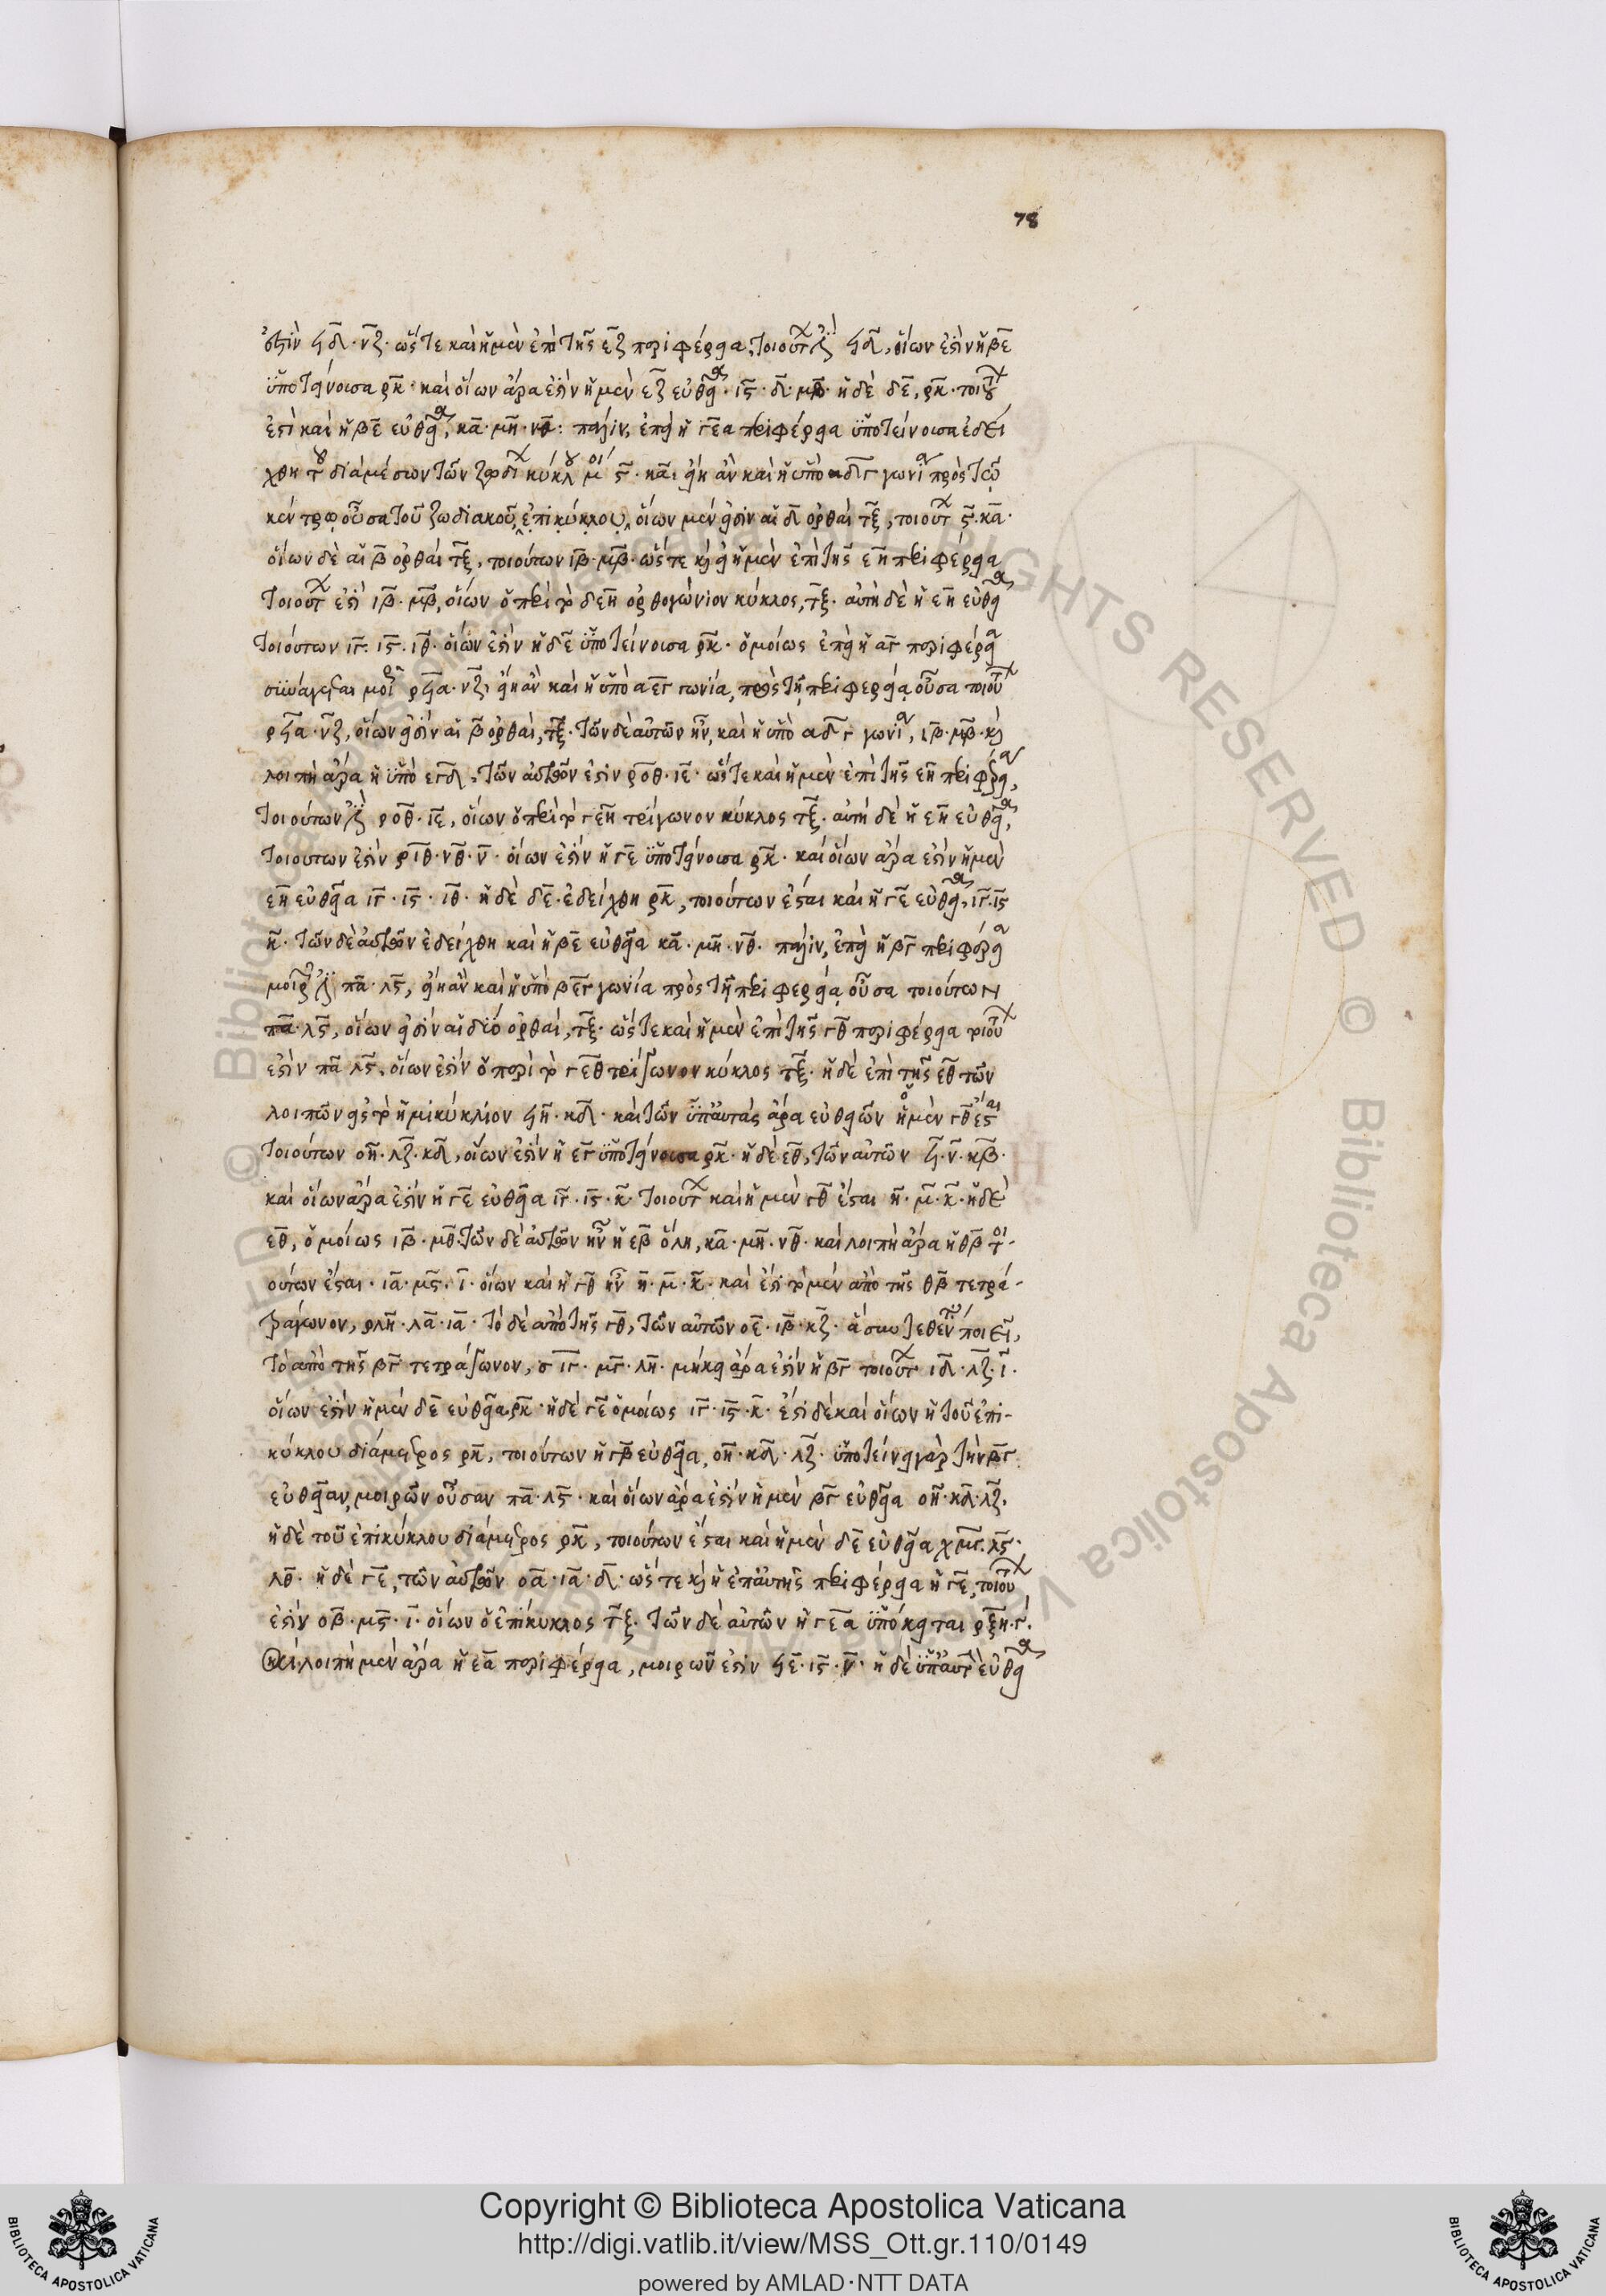 78
ἐστὶν ϟδ · νζ · ὥστε καὶ ἡ μὲν ἐπὶ τῆς εζ περιφέρεια, τοιούτ ἐστὶ ϟδ, οἵων ἐστὶν ἡ βε
ὑποτείνουσα ρκ · καὶ οἵων ἄρα ἐστὶν ἡ μὲν εζ εὐθεῖα · ιϛ · δ · μβ · ἡ δὲ δε, ρκ · τοιού
ἐστὶ καὶ ἡ βε εὐθεῖα, κα · μη · νθ : πάλιν, ἐπεὶ ἡ γεα περιφέρεια ὑποτείνουσα ἐδεί
χθη τοῦ διὰ μέσων τῶν ζῳδι κύκλου μοί ϛ · κα, εἴη ἂν καὶ ἡ ὑπὸ αδγ γωνία πρὸς τῷ
κέντρῳ οὖσα τοῦ ζωδιακοῦ, ἐπικύκλου, οἵων μέν εἰσιν αἱ δ ὀρθαὶ τξ, τοιούτ ϛ · κα ·
οἵων δὲ αἱ β ὀρθαὶ τξ, τοιούτων ιβ · μβ · ὥστε καὶ ἡ μὲν ἐπὶ τῆς εη περιφέρεια
τοιούτ ἐστὶ ιβ · μβ, οἵων ὁ περὶ τὸ δεη ὀρθογώνιον κύκλος, τξ · αὐτὴ δὲ ἡ εη εὐθεῖα
τοιούτων ιγ · ιϛ · ιθ · οἵων ἐστὶν ἡ δε ὑποτείνουσα ρκ · ὁμοίως ἐπεὶ ἡ αγ περιφέρεια
συνάγεται μοι ρϟα · νζ, εἴη ἂν καὶ ἡ ὑπὸ αεγ γωνία, πρὸς τῇ περιφερείᾳ οὖσα τοιού
ρϟα · νζ, οἵων εἰσὶν αἱ β ὀρθαὶ, τξ · τῶν δὲ αὐτῶν ἦν, καὶ ἡ ὑπὸ αδγ γωνία, ιβ · μβ · καὶ
λοιπὴ ἄρα ἡ ὑπὸ εγδ, τῶν αὐτῶν ἐστὶν ροθ · ιε · ὥστε καὶ ἡ μὲν ἐπὶ τῆς εη περιφέρεια,
τοιούτων ἐστὶ ροθ · ιε, οἵων ὁ περὶ τὸ γεη τρίγωνον κύκλος τξ · αὐτὴ δὲ ἡ εη εὐθεῖα,
τοιουτων ἐστὶν ριθ · νθ · ν · οἵων ἐστὶν ἡ γε ὑποτείνουσα ρκ · καὶ οἵων ἄρα ἐστὶν ἡ μὲν
εη εὐθεῖα ιγ · ιϛ · ιθ · ἡ δὲ δε · ἐδείχθη ρκ, τοιούτων ἔσται καὶ ἡ γε εὐθεῖα, ιγ · ιϛ
κ · τῶν δὲ αὐτῶν ἐδείχθη καὶ ἡ βε εὐθεῖα κα · μη · νθ · πάλιν, ἐπεὶ ἡ βγ περιφέρεια
μοιρ ἐστὶ πα · λϛ, εἴη ἂν καὶ ἡ ὑπὸ βεγ γωνία πρὸς τῇ περιφερείᾳ οὖσα τοιούτων
πα · λϛ, οἵων εἰσὶν αἱ δύο ὀρθαὶ, τξ · ὥστε καὶ ἡ μὲν ἐπὶ τῆς γθ περιφέρεια τοιού
ἐστὶν πα λϛ, οἵων ἐστὶν ὁ περὶ τὸ γεθ τρίγωνον κύκλος τξ · ἡ δὲ ἐπὶ τῆς εθ τῶν
λοιπῶν εἰς τὸ ἡμικύκλιον ϟη · κδ · καὶ τῶν ὑπ' αὐτὰς ἄρα εὐθειῶν ἡ μὲν γθ ἔσται
τοιούτων οη · λζ · κδ, οἵων ἐστὶν ἡ εγ ὑποτείνουσα ρκ · ἡ δὲ εθ, τῶν αὐτῶν ϟ · ν · κβ ·
καὶ οἵων ἄρα ἐστὶν ἡ γε εὐθεῖα ιγ · ιϛ · κ · τοιούτ καὶ ἡ μὲν γθ ἔσται η · μ · κ · ἡ δὲ
εθ, ὁμοίως ιβ · μθ · τῶν δὲ αὐτῶν ἦν ἡ εβ ὅλη, κα · μη · νθ · καὶ λοιπὴ ἄρα ἡ θβ τοι-
ούτων ἔσται · ια · μϛ · ι · οἵων καὶ ἡ γθ ἦν η · μ · κ · καὶ ἐστὶ τὸ μὲν ἀπὸ τῆς θβ τετρά-
γωνον, ρλη · λα · ια · τὸ δὲ ἀπὸ τῆς γθ, τῶν αὐτῶν οε · ιβ · κζ · ἃ συντεθέντα ποιεῖ,
τὸ ἀπὸ τῆς βγ τετράγωνον, σιγ · μγ · λη · μήκει ἄρα ἐστὶν ἡ βγ τοιούτ ιδ · λζ · ι ·
οἵων ἐστὶν ἡ μὲν δε εὐθεῖα ρκ · ἡ δὲ γε ὁμοίως ιγ · ιϛ · κ · ἔστι δὲ καὶ οἵων ἡ τοῦ ἐπι-
κύκλου διάμετρος ρκ, τοιούτων ἡ γβ εὐθεῖα, οη · κδ · λζ · ὑποτείνει γὰρ τὴν βγ
εὐθεῖαν, μοιρῶν οὖσαν πα · λϛ · καὶ οἵων ἄρα ἐστὶν ἡ μὲν βγ εὐθεῖα οη · κδ · λζ.
ἡ δὲ τοῦ ἐπικύκλου διάμετρος ρκ, τοιούτων ἔσται καὶ ἡ μὲν δε εὐθεῖα χμγ · λϛ ·
λθ · ἡ δὲ γε, τῶν αὐτῶν οα · ια · δ · ὥστε καὶ ἡ ἐπ' αὐτῆς περιφέρεια ἡ γε, τοιού
ἐστὶν οβ · μϛ · ι · οἵων ὁ ἐπίκυκλος τξ · τῶν δὲ αὐτῶν ἡ γεα ὑπόκειται ρξη · γ ·
καὶ λοιπὴ μὲν ἄρα ἡ εα περιφέρεια, μοιρῶν ἐστὶν ϟε · ιϛ · ν · ἡ δὲ ὑπ' αὐτὴ εὐθεῖα
© Biblioteca Apostolica Vaticana
ALL RIGHTS RESERVED
Copyright © Biblioteca Apostolica Vaticana
http://digi.vatlib.it/view/MSS_Ott.gr.110/0149
powered by AMLAD·NTT DATA
BIBLIOTECA APOSTOLICA VATICANA
BIBLIOTECA APOSTOLICA VATICANA